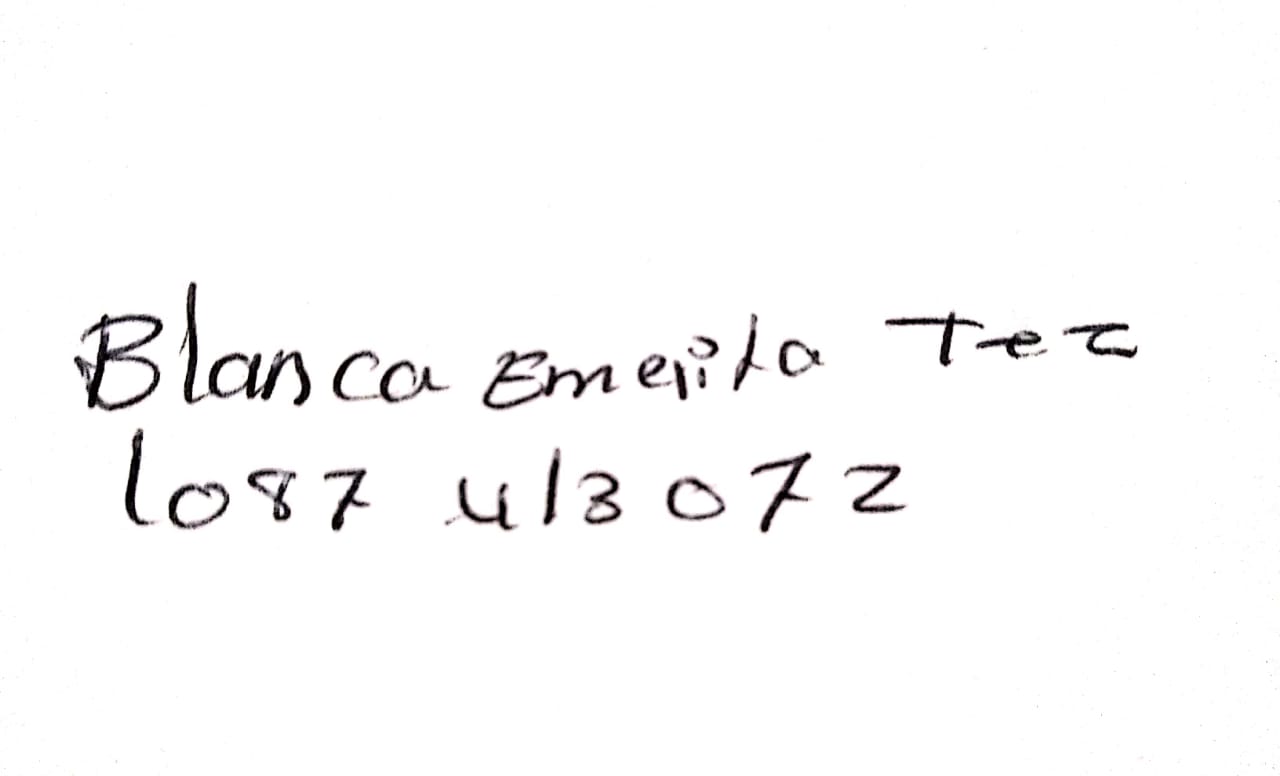 Blanca Emerita Tez
1087 413072